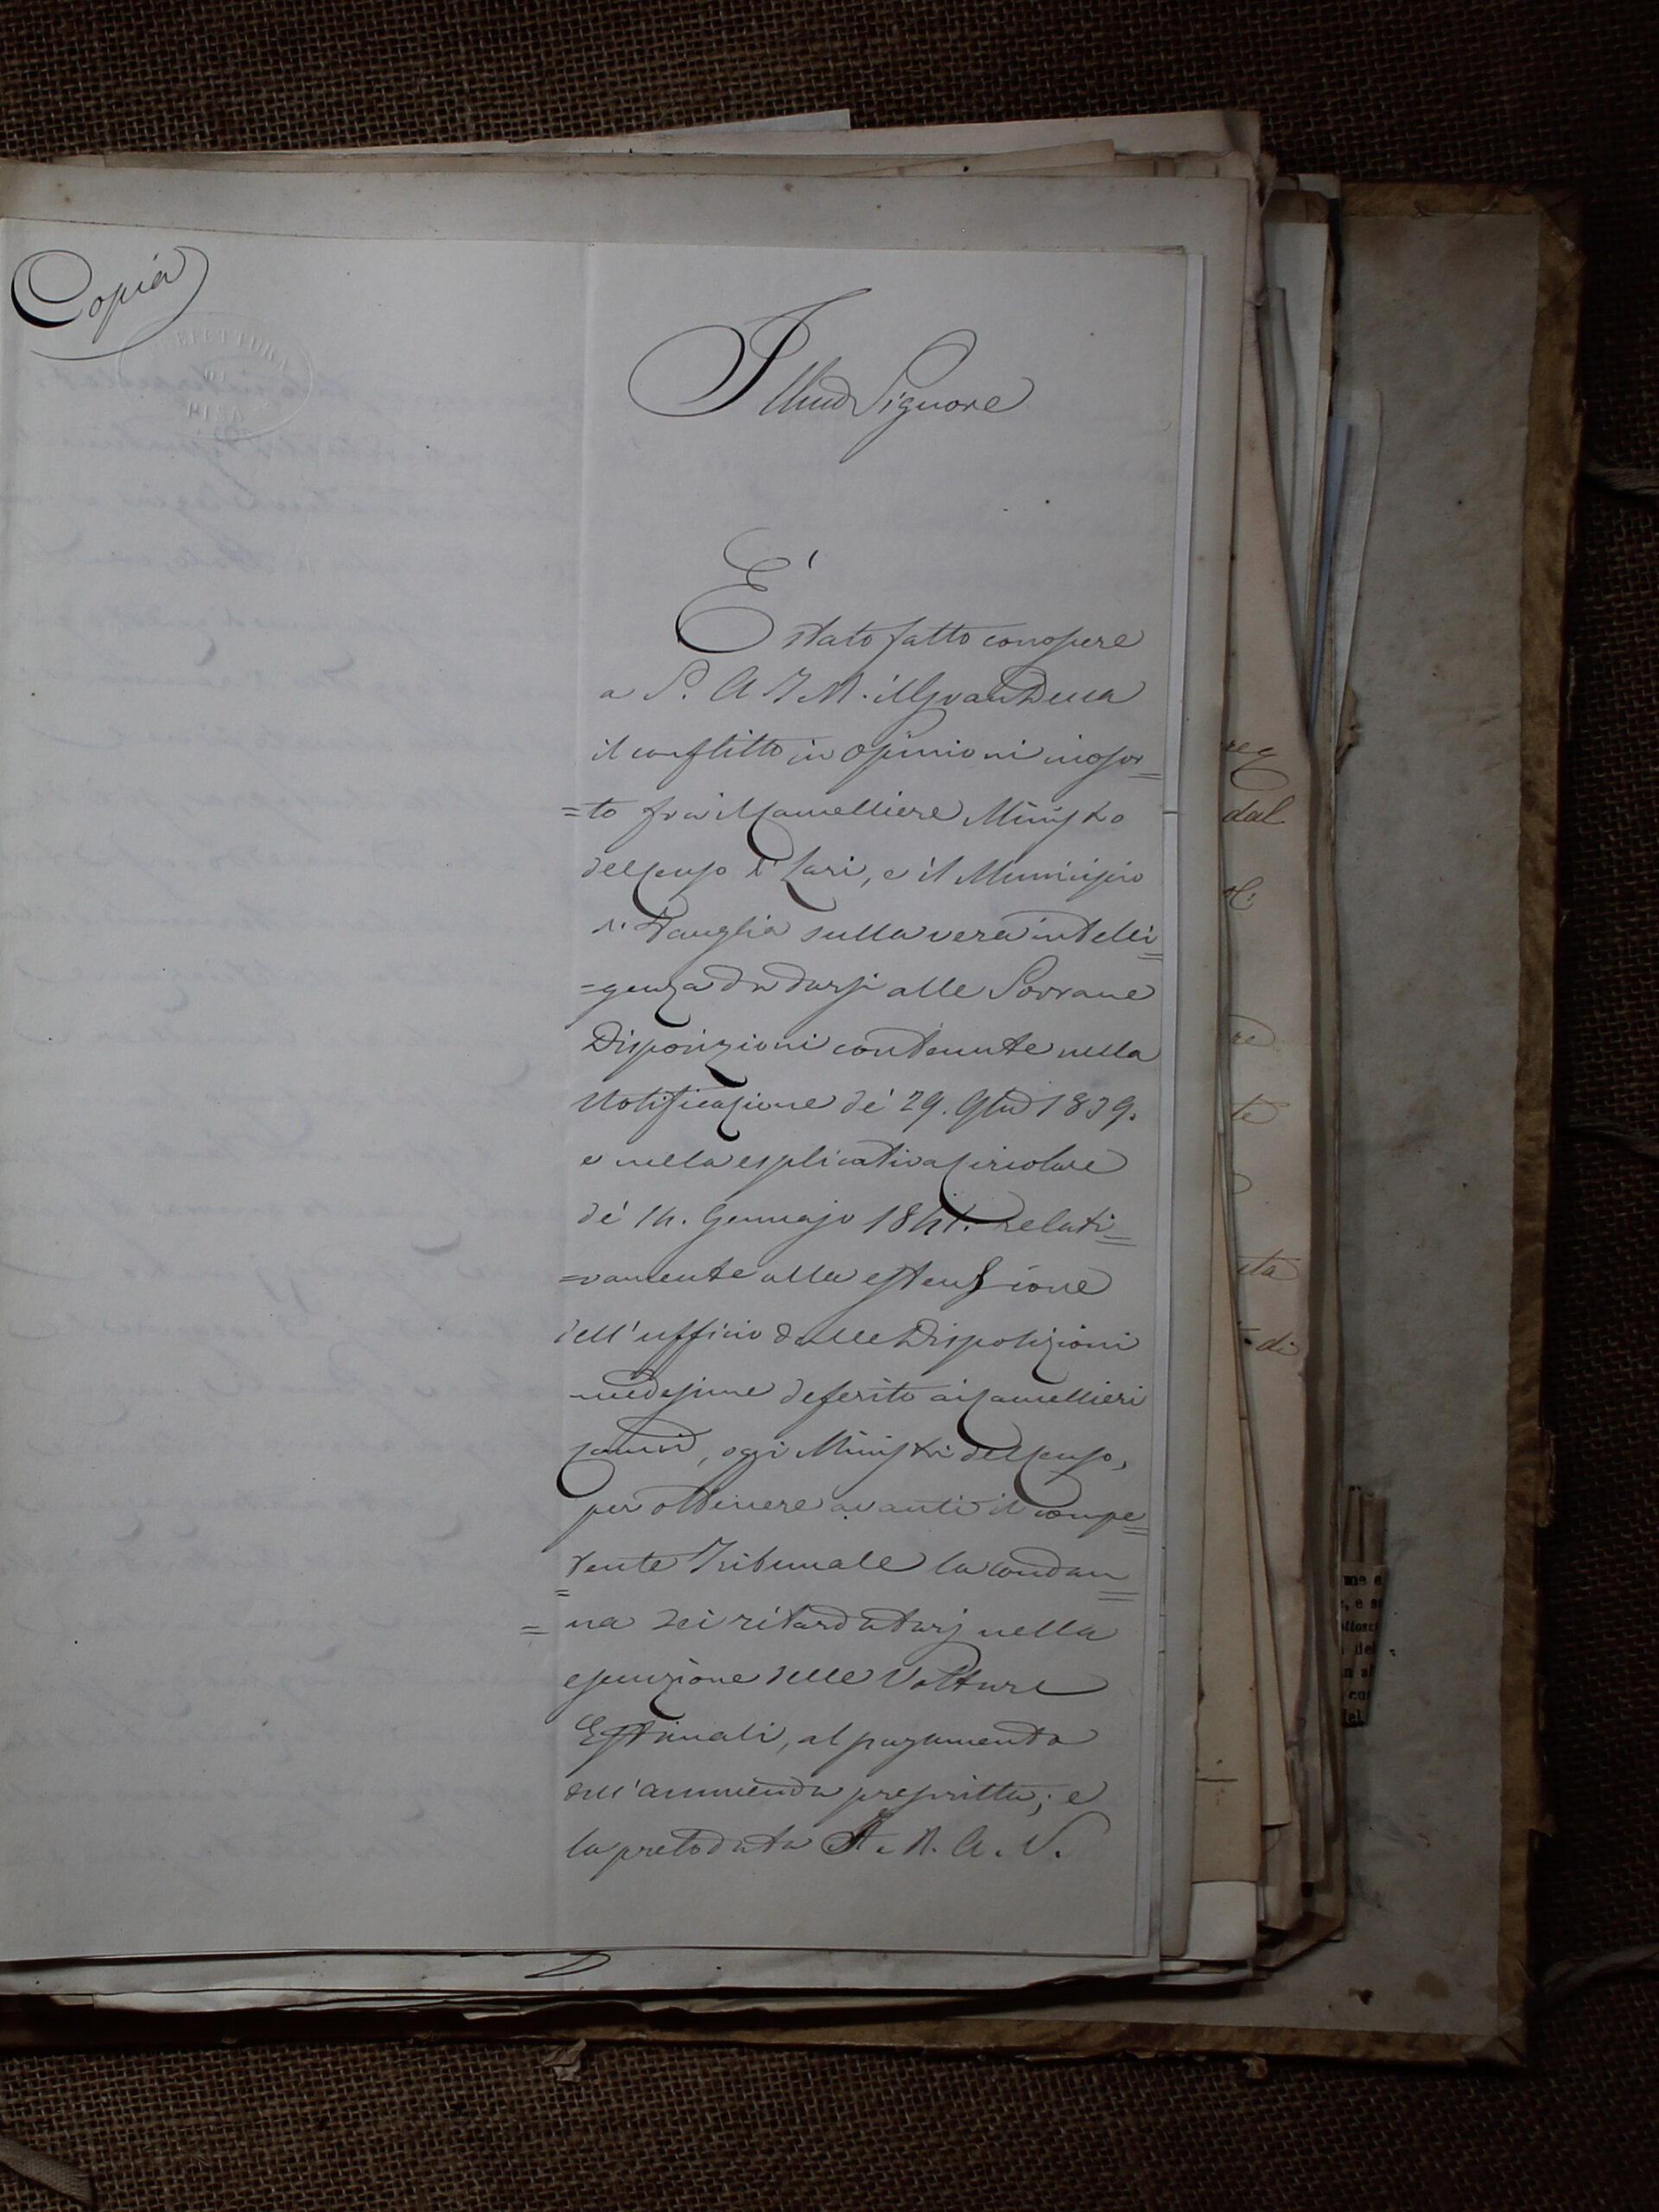 Copia
PREFETTURA
DI
PISA
Illmo Signore
E' stato fatto conoscere
a S. A. I. e R. il Gran Duca
il conflitto in opinioni insor=
=to fra il Cancelliere Ministro
del Censo di Lari, e il Municipio
di Fauglia sulla vera intelli=
=genza da darsi alle Sovrane
Disposizioni contenute nella
Notificazione de' 29. 1839.
e nella esplicativa Circolare
de' 14. Gennajo 1841. relati=
=vamente alla estensione
dell'ufficio dalle Disposizioni
medesime deferito ai Cancellieri
, oggi Ministri del Censo,
per ottenere avanti il compe=
=tente Tribunale la condan=
=na dei ritardatarj nella
esecuzione delle Volture
Estimali, al pagamento
dell'ammenda prescritta; e
la prelodata A. S.
reg
dal
re
te
ta
di
del